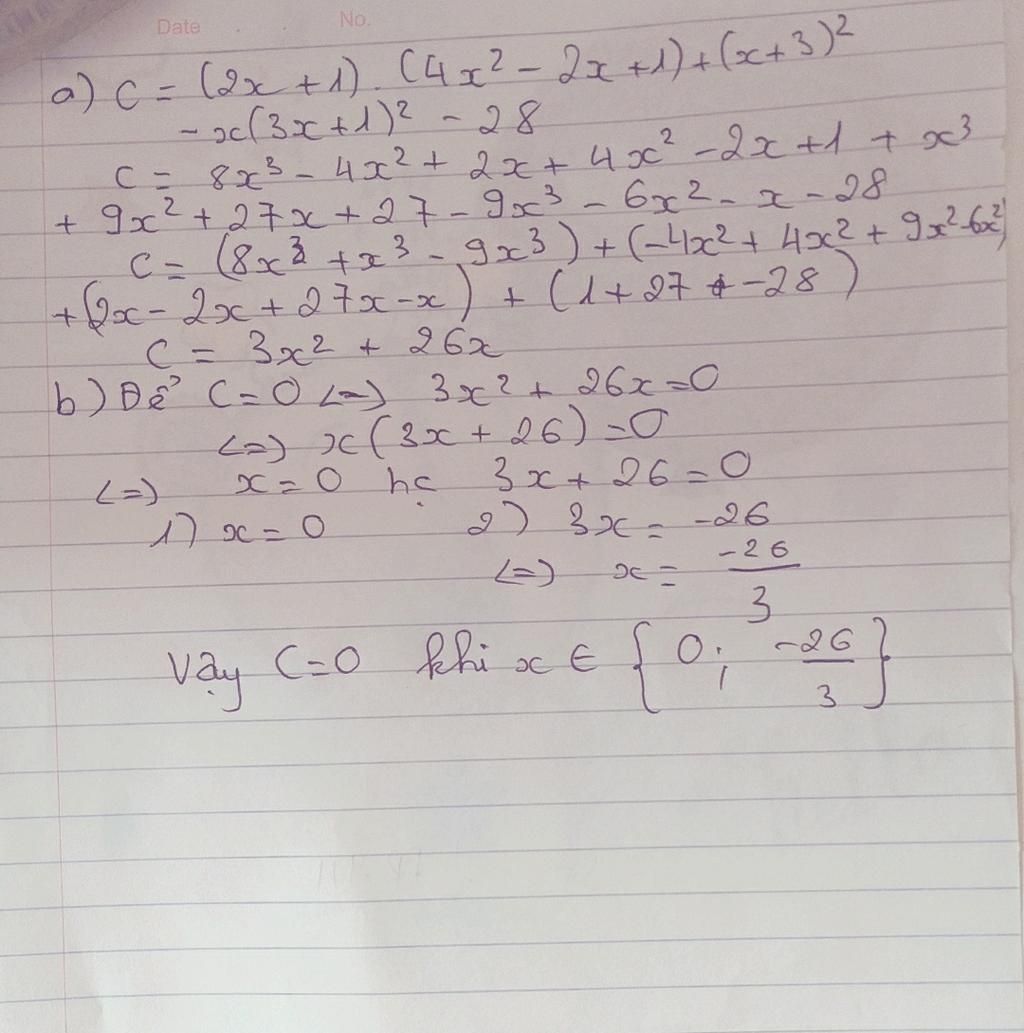 Date No.
a) C = (2x + 1) . (4x² - 2x + 1) + (x + 3)²
- x(3x + 1)² - 28
C = 8x³ - 4x² + 2x + 4x² - 2x + 1 + x³
+ 9x² + 27x + 27 - 9x³ - 6x² - x - 28
C = (8x³ + x³ - 9x³) + (-4x² + 4x² + 9x² - 6x²)
+ (2x - 2x + 27x - x) + (1 + 27 + - 28)
C = 3x² + 26x
b) Để C = 0 <=> 3x² + 26x = 0
<=> x(3x + 26) = 0
<=> x = 0 hc 3x + 26 = 0
1) x = 0 2) 3x = -26
<=> x = -26/3
Vậy C = 0 khi x ∈ {0; -26/3}